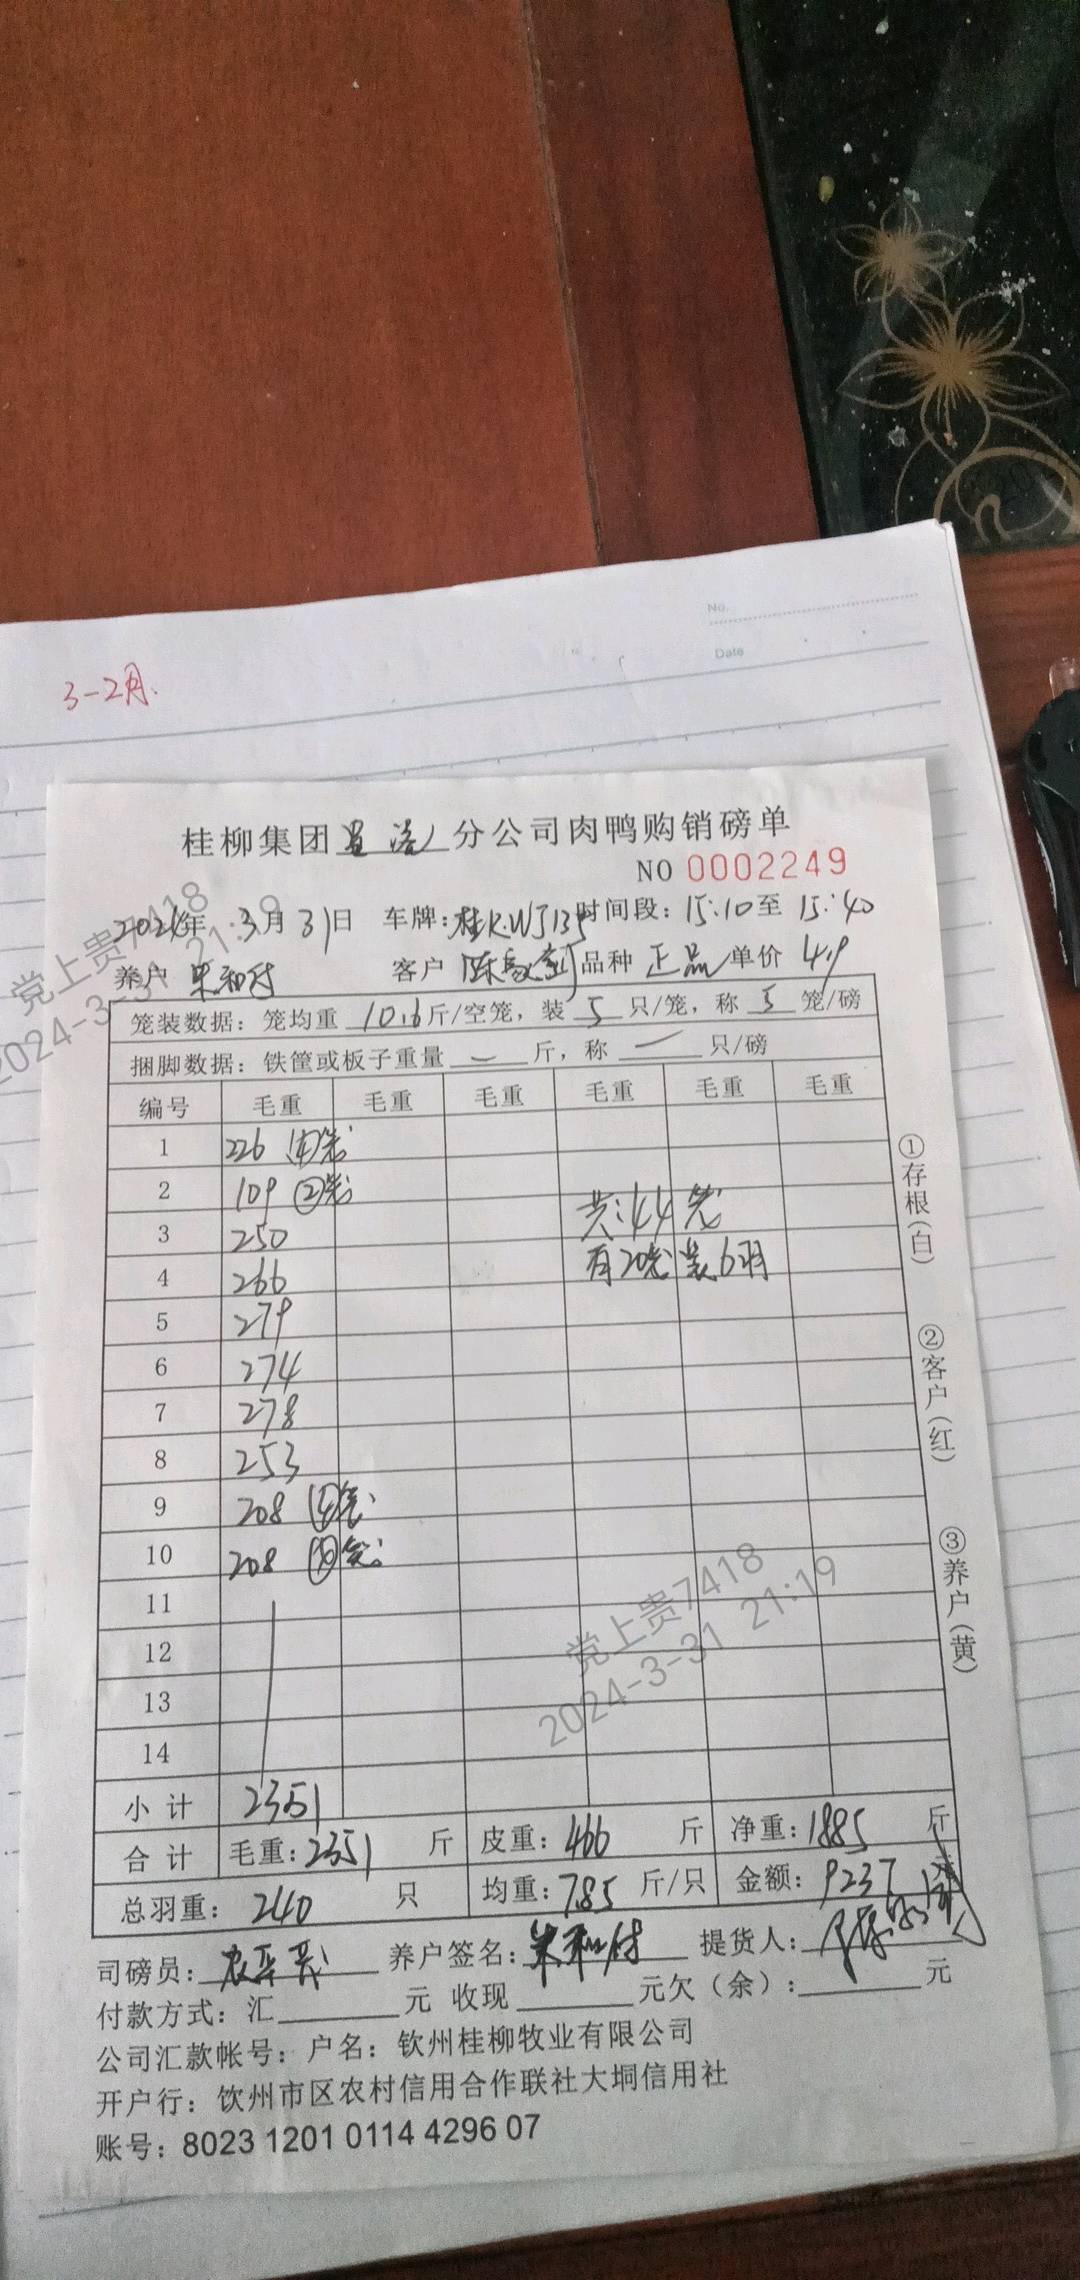 No.
Date
3-2月.
桂柳集团 分公司肉鸭购销磅单
NO 0002249
2024年 3月31日 车牌:桂K.WJ135 时间段:15:10至 15:40
养户 朱和付 客户 陈 品种 正品 单价 4.9
笼装数据:笼均重 10.6斤/空笼,装 5 只/笼,称 5 笼/磅
捆脚数据:铁筐或板子重量 一 斤,称 一 只/磅
编号 毛重 毛重 毛重 毛重 毛重 毛重
1 226 ④笼
2 109 ②笼
3 250
4 266
5 279
6 274
7 278
8 253
9 208 ④笼
10 208 笼
11
12
13
14
共:44笼
有20笼装6羽
小计 2351
合计 毛重:2351 斤 皮重:466 斤 净重:1885 斤
总羽重:240 只 均重:7.85 斤/只 金额:9237 元
司磅员: 养户签名:朱和付 提货人:
付款方式:汇 元 收现 元欠(余): 元
公司汇款帐号:户名:钦州桂柳牧业有限公司
开户行:钦州市区农村信用合作联社大垌信用社
账号:8023 1201 0114 4296 07
①存根(白)
②客户(红)
③养户(黄)
党上贵7418
2024-3-31 21:19
党上贵7418
2024-3-31 21:19